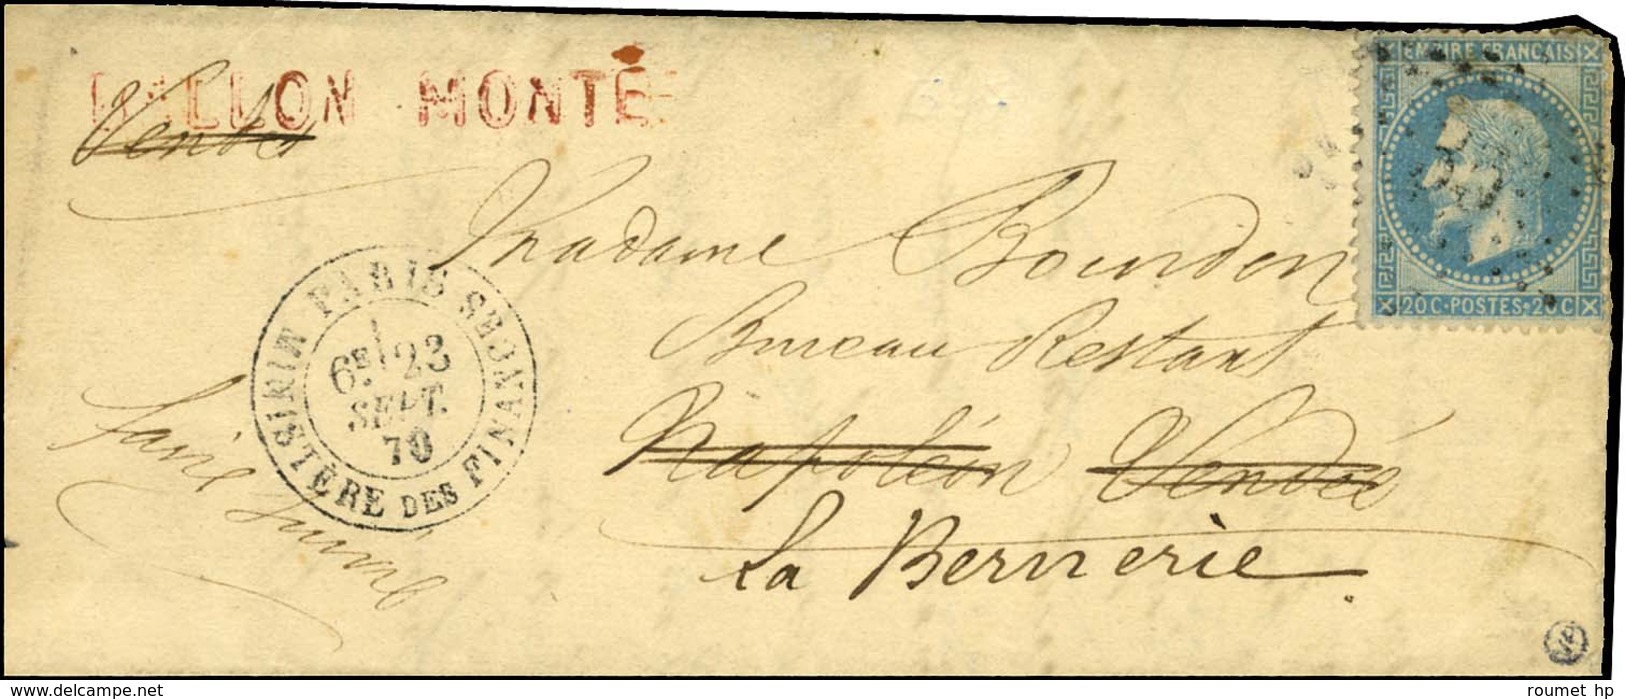 BALLON MONTÉ
Vendée
EMPIRE FRANÇAIS
20 C · POSTES · 20 C
Madame Bourdon
Bureau Restant
Napoléon Vendée
La Bernerie
PARIS SEDNANCES
MINISTÈRE DES FINANCES
6E 23
SEPT.
70
faire suivre
www.delcampe.net
roumet hp